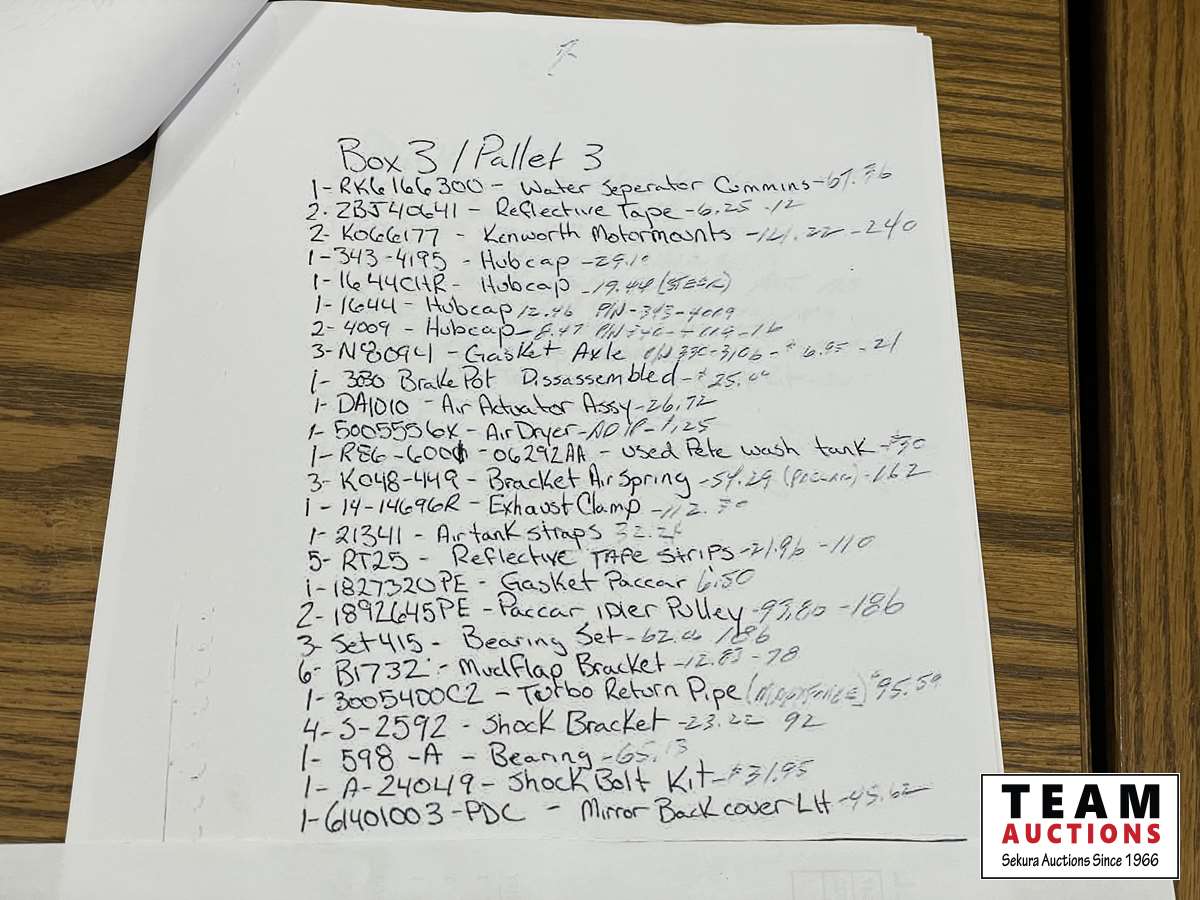 Box 3 / Pallet 3
1- RK6166300 - Water Seperator Cummins - 67.76
2- ZBJ40641 - Reflective Tape - 6.25 - 12
2- K066177 - Kenworth Motormounts - 121.22 - 240
1- 343-4195 - Hubcap - 29.10
1- 1644CHR - Hubcap - 19.44 (STEER)
1- 1644 - Hubcap 12.46 P/N - 343-4009
2- 4009 - Hubcap - 8.47
3- N8094 - Gasket Axle - $6.95 - 21
1- 3030 Brake Pot Dissassembled - $25.00
1- DA1010 - Air Actuator Assy - 26.72
1- 5005556X - Air Dryer - AD IP
1- R86-6000 - 06292AA - used Pete wash tank
3- K048-449 - Bracket Air Spring - 54.29 (Paccar) - 162
1- 14-14696R - Exhaust Clamp
1- 21341 - Airtank straps
5- RT25 - Reflective TAPE Strips - 21.96 - 110
1- 1827320PE - Gasket Paccar 6.50
2- 1892645PE - Paccar idler Pulley - 93.80 - 186
3- Set 415 - Bearing Set - 186
6- B1732 - Mudflap Bracket - 12.83 - 78
1- 3005400C2 - Turbo Return Pipe (Maxxforce) $95.59
4- S-2592 - Shock Bracket - 23.22 92
1- 598-A - Bearing - 65.13
1- A-24049 - Shock Bolt Kit - $31.95
1- 61401003-PDC - Mirror Back cover LH - 45.62
TEAM
AUCTIONS
Sekura Auctions Since 1966